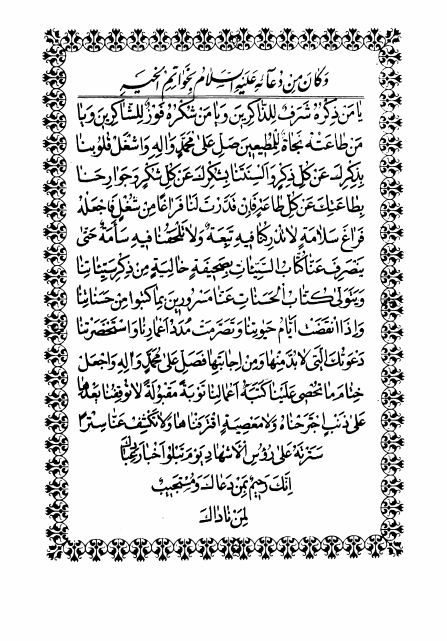 وَكَانَ مِنْ دُعَائِهِ عَلَيْهِ السَّلَامُ بِخَوَاتِمِ الْخَيْرِ
يَا مَنْ ذِكْرُهُ شَرَفٌ لِلذَّاكِرِينَ وَيَا مَنْ شُكْرُهُ فَوْزٌ لِلشَّاكِرِينَ وَيَا
مَنْ طَاعَتُهُ نَجَاةٌ لِلْمُطِيعِينَ صَلِّ عَلَى مُحَمَّدٍ وَآلِهِ وَاشْغَلْ قُلُوبَنَا
بِذِكْرِكَ عَنْ كُلِّ ذِكْرٍ وَأَلْسِنَتَنَا بِشُكْرِكَ عَنْ كُلِّ شُكْرٍ وَجَوَارِحَنَا
بِطَاعَتِكَ عَنْ كُلِّ طَاعَةٍ فَإِنْ قَدَّرْتَ لَنَا فَرَاغًا مِنْ شُغْلٍ فَاجْعَلْهُ
فَرَاغَ سَلَامَةٍ لَا تُدْرِكُنَا فِيهِ تَبِعَةٌ وَلَا تَلْحَقُنَا فِيهِ سَأْمَةٌ حَتَّى
يَنْصَرِفَ عَنَّا كُتَّابُ السَّيِّئَاتِ بِصَحِيفَةٍ خَالِيَةٍ مِنْ ذِكْرِ سَيِّئَاتِنَا
وَيَتَوَلَّى كُتَّابُ الْحَسَنَاتِ عَنَّا مَسْرُورِينَ بِمَا كَتَبُوا مِنْ حَسَنَاتِنَا
وَإِذَا انْقَضَتْ أَيَّامُ حَيٰوتِنَا وَتَصَرَّمَتْ مُدَدُ أَعْمَارِنَا وَاسْتَحْضَرَتْنَا
دَعْوَتُكَ الَّتِي لَا بُدَّ مِنْهَا وَمِنْ إِجَابَتِهَا فَصَلِّ عَلَى مُحَمَّدٍ وَآلِهِ وَاجْعَلْ
خِتَامَ مَا تُحْصِي عَلَيْنَا كَتَبَةُ أَعْمَالِنَا تَوْبَةً مَقْبُولَةً لَا تُوقِفُنَا بَعْدَهَا
عَلَى ذَنْبٍ اجْتَرَحْنَاهُ وَلَا مَعْصِيَةٍ اقْتَرَفْنَاهَا وَلَا تَكْشِفْ عَنَّا سِتْرًا
سَتَرْتَهُ عَلَى رُؤُسِ الْأَشْهَادِ يَوْمَ تَبْلُو أَخْبَارَ عِبَادِكَ
إِنَّكَ رَحِيمٌ بِمَنْ دَعَاكَ وَمُسْتَجِيبٌ
لِمَنْ نَادَاكَ